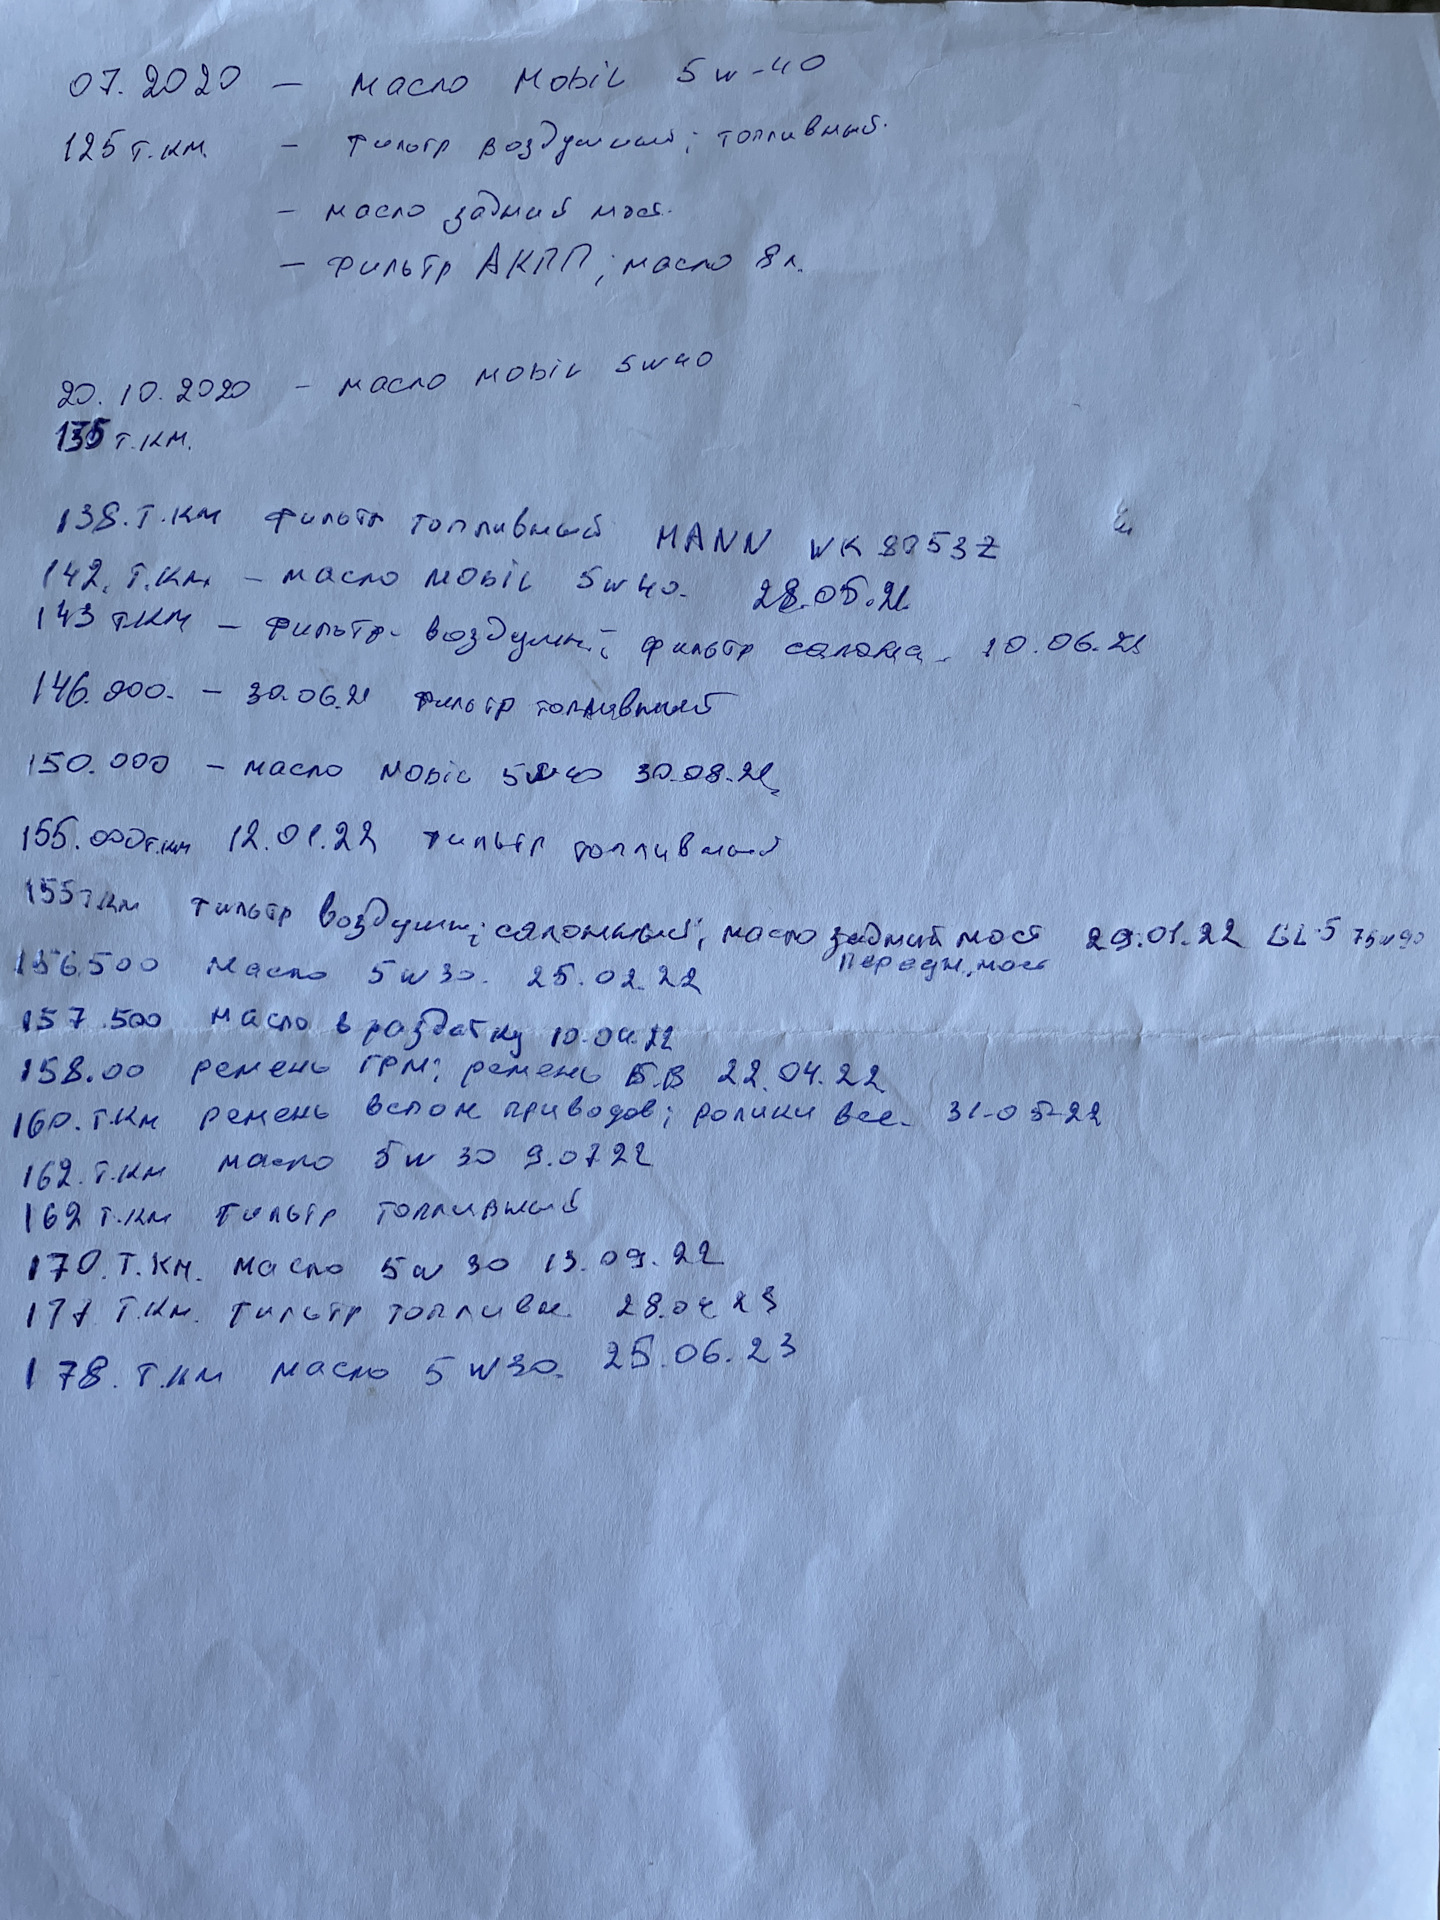 07.2020 — масло Mobil 5w-40
125 т.км. — Фильтр воздушный; топливный.
— масло задний мост.
— Фильтр АКПП; масло 8 л.
20.10.2020 — масло Mobil 5w40
т.км.
138.т.км Фильтр топливный MANN WK 8053Z
142. т.км — масло Mobil 5w40. 28.05.21
143 т.км — Фильтр воздушн.; фильтр салона. 10.06.21
146.000. — 30.06.21 Фильтр топливный
150.000 — масло Mobil 5w40 30.08.21
155.000т.км 12.01.22 Фильтр топливный
155 т.км Фильтр воздушн; салонный; масло задний мост 29.01.22 GL-5 75w90
передн. мост
156.500 масло 5w30. 25.02.22
157.500 масло в раздатку 10.04.22
158.00 ремень ГРМ; ремень Б.В 22.04.22
160.т.км ремень вспом приводов; ролики все. 31-05-22
162.т.км масло 5w30 9.07.22
162 т.км Фильтр топливный
170.т.км. масло 5w30 13.09.22
177 т.км. Фильтр топливн. 28.04.23
178.т.км масло 5w30. 25.06.23